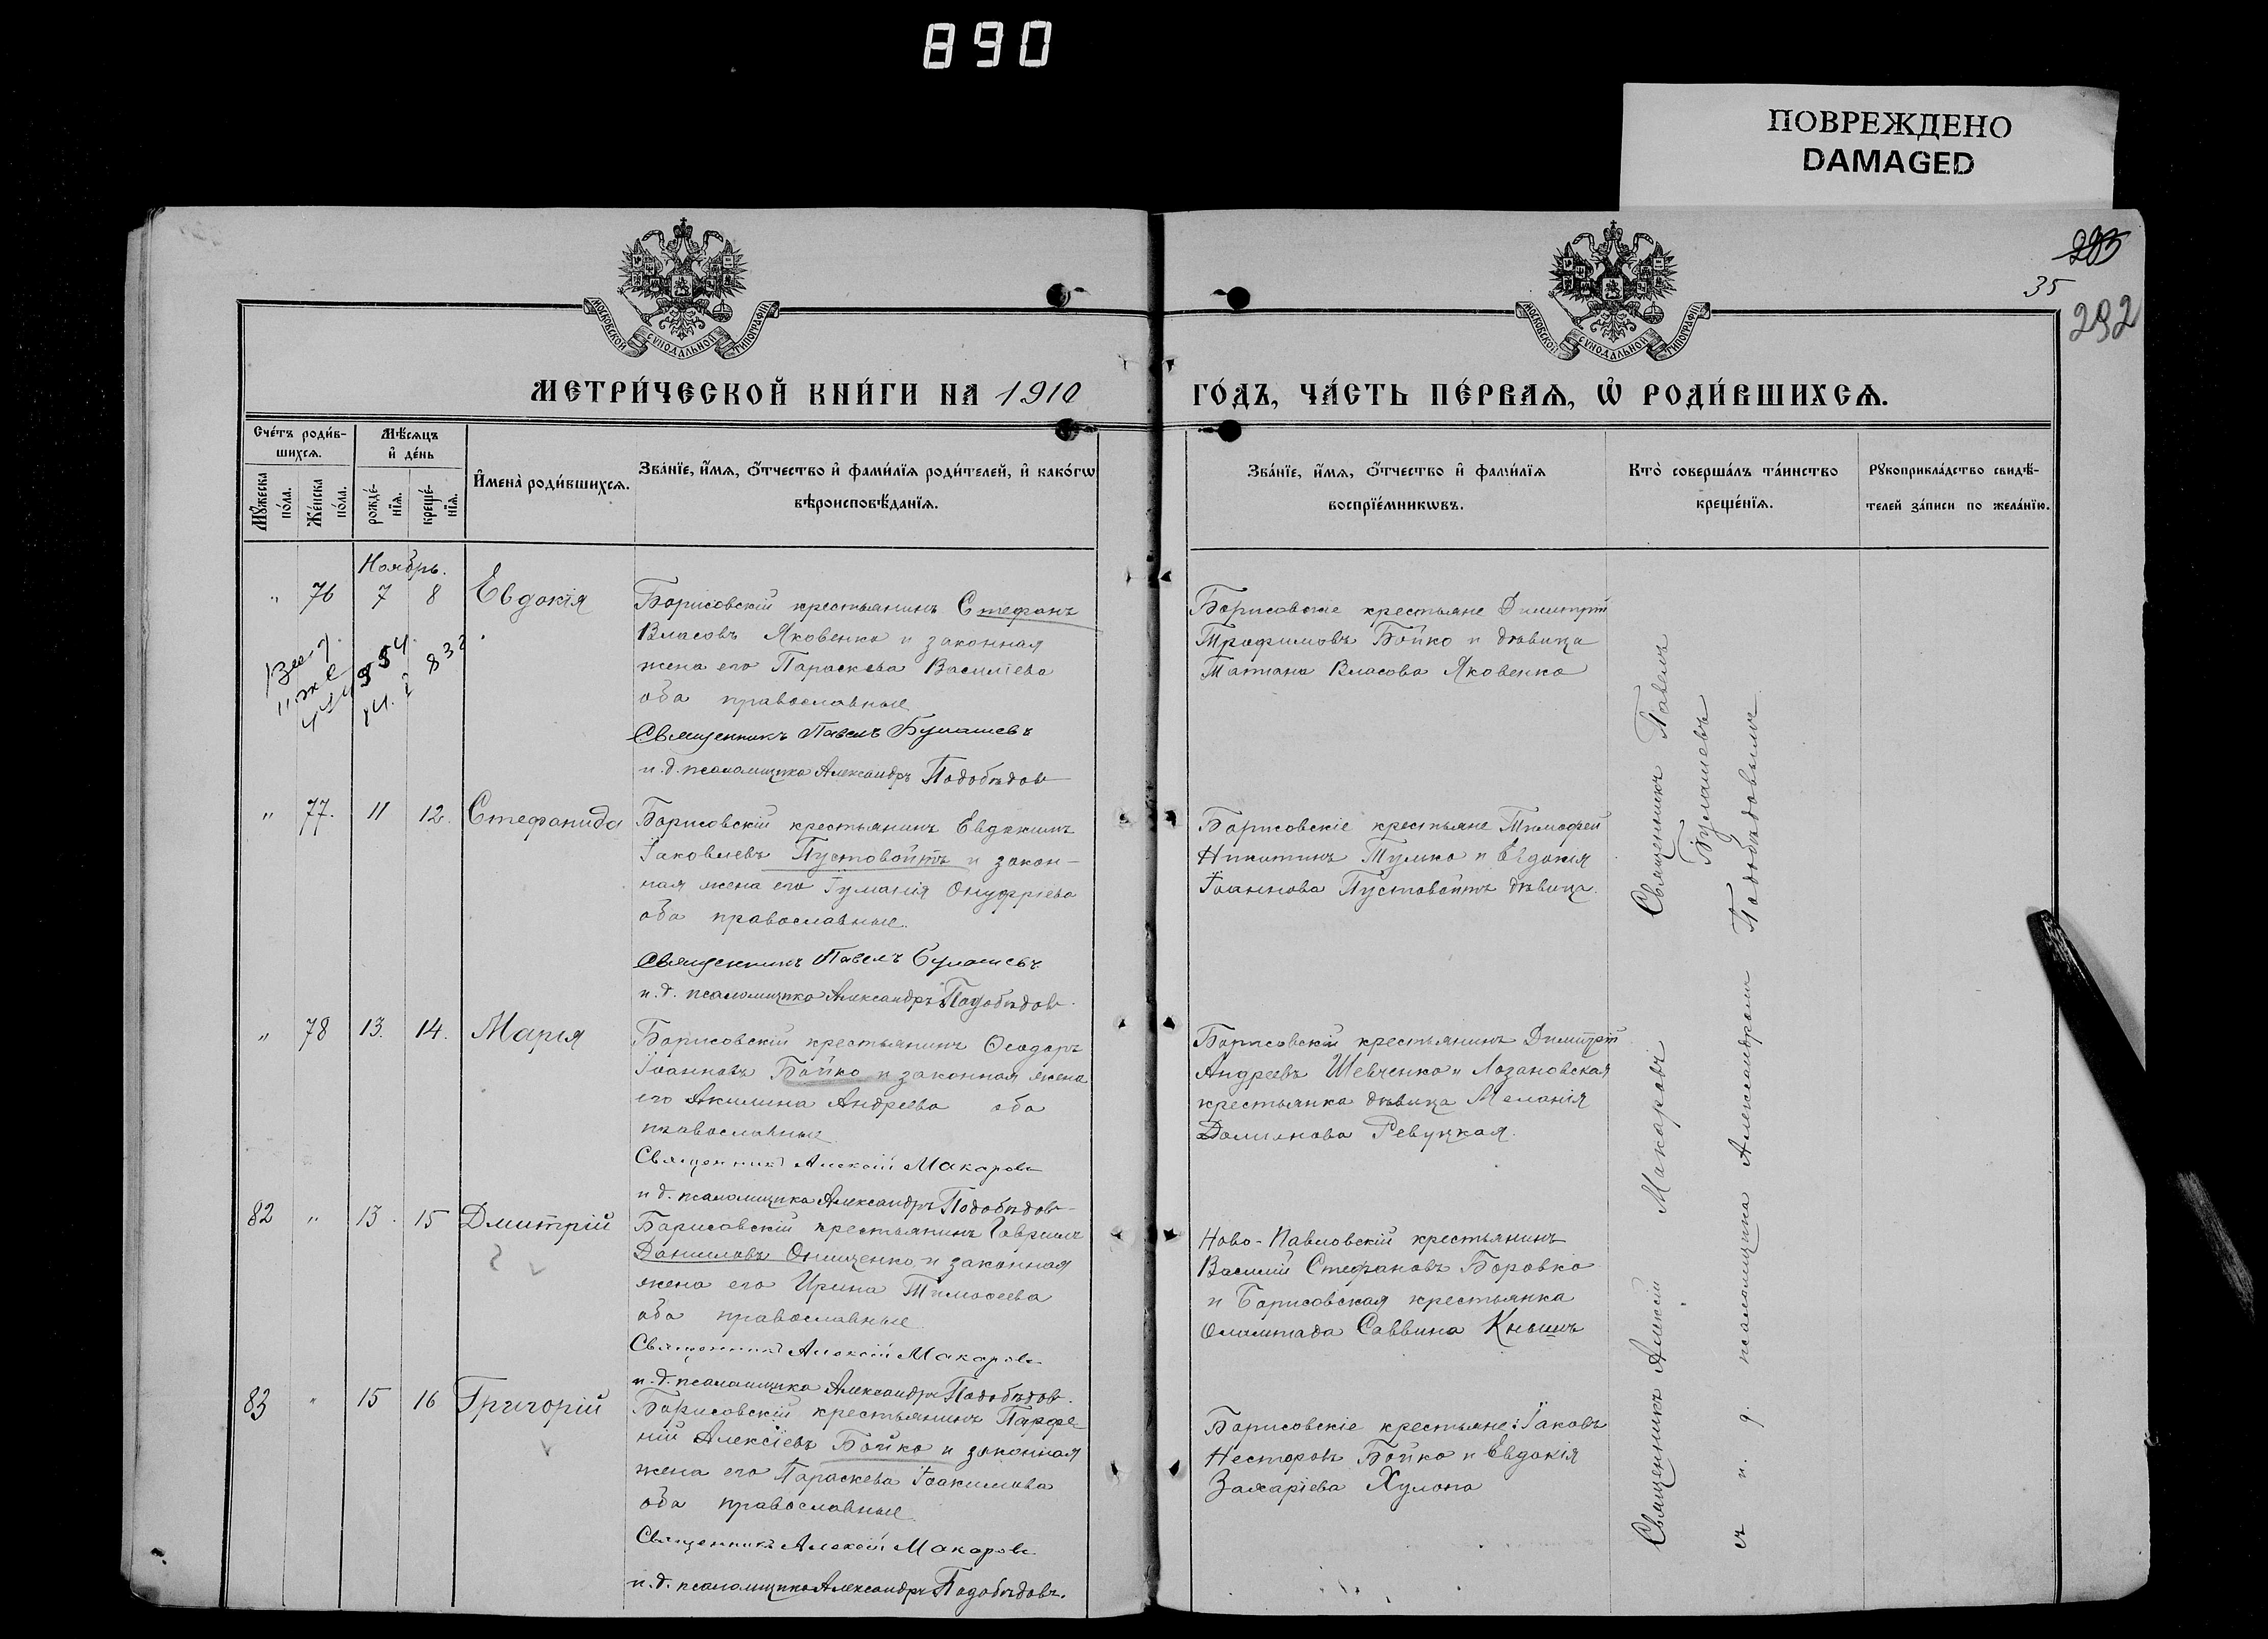 890
ПОВРЕЖДЕНО
DAMAGED
285
35
292
МОСКОВСКОЙ СѴНОДАЛЬНОЙ ТИПОГРАФІИ
МОСКОВСКОЙ СѴНОДАЛЬНОЙ ТИПОГРАФІИ
МЕТРИ́ЧЕСКОЙ КНИ́ГИ НА 1910
ГО́ДЪ, ЧА́СТЬ ПЕ́РВАѦ, Ѡ҆ РОДИ́ВШИХСѦ.
Сче́тъ роди́в-
шихсѧ.
Мѣ́сѧцъ
и҆ де́нь
Мꙋ́жеска
по́ла.
Же́нска
по́ла.
рожде́-
нїѧ.
креще́-
нїѧ.
И҆мена̀ роди́вшихсѧ.
Зва́нїе, и҆́мѧ, ѻ҆́тчество и҆ фами́лїѧ роди́телей, и҆ како́гѡ
вѣроисповѣ́данїѧ.
Зва́нїе, и҆́мѧ, ѻ҆́тчество и҆ фами́лїѧ
воспрїе́мникѡвъ.
Кто̀ соверша́лъ та́инство
креще́нїѧ.
Рꙋкоприкла́дство свидѣ́-
телей за́писи по жела́нїю.
Ноябрь.
" 76 7 8 Евдокія
Борисовскій крестьянинъ Стефанъ
Власовъ Яковенко и законная
жена его Параскева Василіева
оба православные
Священникъ Павелъ Булашевъ
и. д. псаломщика Александръ Подобѣдовъ
Борисовскіе крестьяне Димитрій
Трофимовъ Бойко и дѣвица
Татіана Власова Яковенко
" 77. 11 12. Стефанида
Борисовскій крестьянинъ Евдокимъ
Іаковлевъ Пустовойтъ и закон-
ная жена его Іуманія Онуфріева
оба православные.
Священникъ Павелъ Булашевъ
и. д. псаломщика Александръ Подобѣдовъ
Борисовскіе крестьяне Тимофей
Никитинъ Тулько и Евдокія
Іоаннова Пустовойтъ дѣвица.
" 78 13. 14. Марія
Борисовскій крестьянинъ Ѳеодоръ
Іоанновъ Бойко и законная жена
его Акилина Андреева оба
православные
Священникъ Алексій Макаровъ
и д. псаломщика Александръ Подобѣдовъ
Борисовскій крестьянинъ Димитрій
Андреевъ Шевченко и Лозановская
крестьянка дѣвица Меланія
Даміанова Ревуцкая.
82 " 13. 15 Дмитрій
Борисовскій крестьянинъ Гавріилъ
Даниловъ Онищенко и законная
жена его Ирина Тимоѳеева
оба православные
Священникъ Алексій Макаровъ
и. д. псаломщика Александръ Подобѣдовъ.
Ново-Павловскій крестьянинъ
Василій Стефановъ Боровко
и Борисовская крестьянка
Олимпіада Саввина Кнышъ
83 " 15 16 Григорій
Борисовскій крестьянинъ Парфе
ній Алексіевъ Бойко и законная
жена его Параскева Іоакимова
оба православные.
Священникъ Алексій Макаровъ
и. д. псаломщика Александръ Подобѣдовъ.
Борисовскіе крестьяне: Іаковъ
Несторовъ Бойко и Евдокія
Захаріева Хулопа
Священникъ Павелъ
Булашевъ
Священникъ Алексій Макаровъ
съ и. д. псаломщика Александромъ Подобѣдовымъ